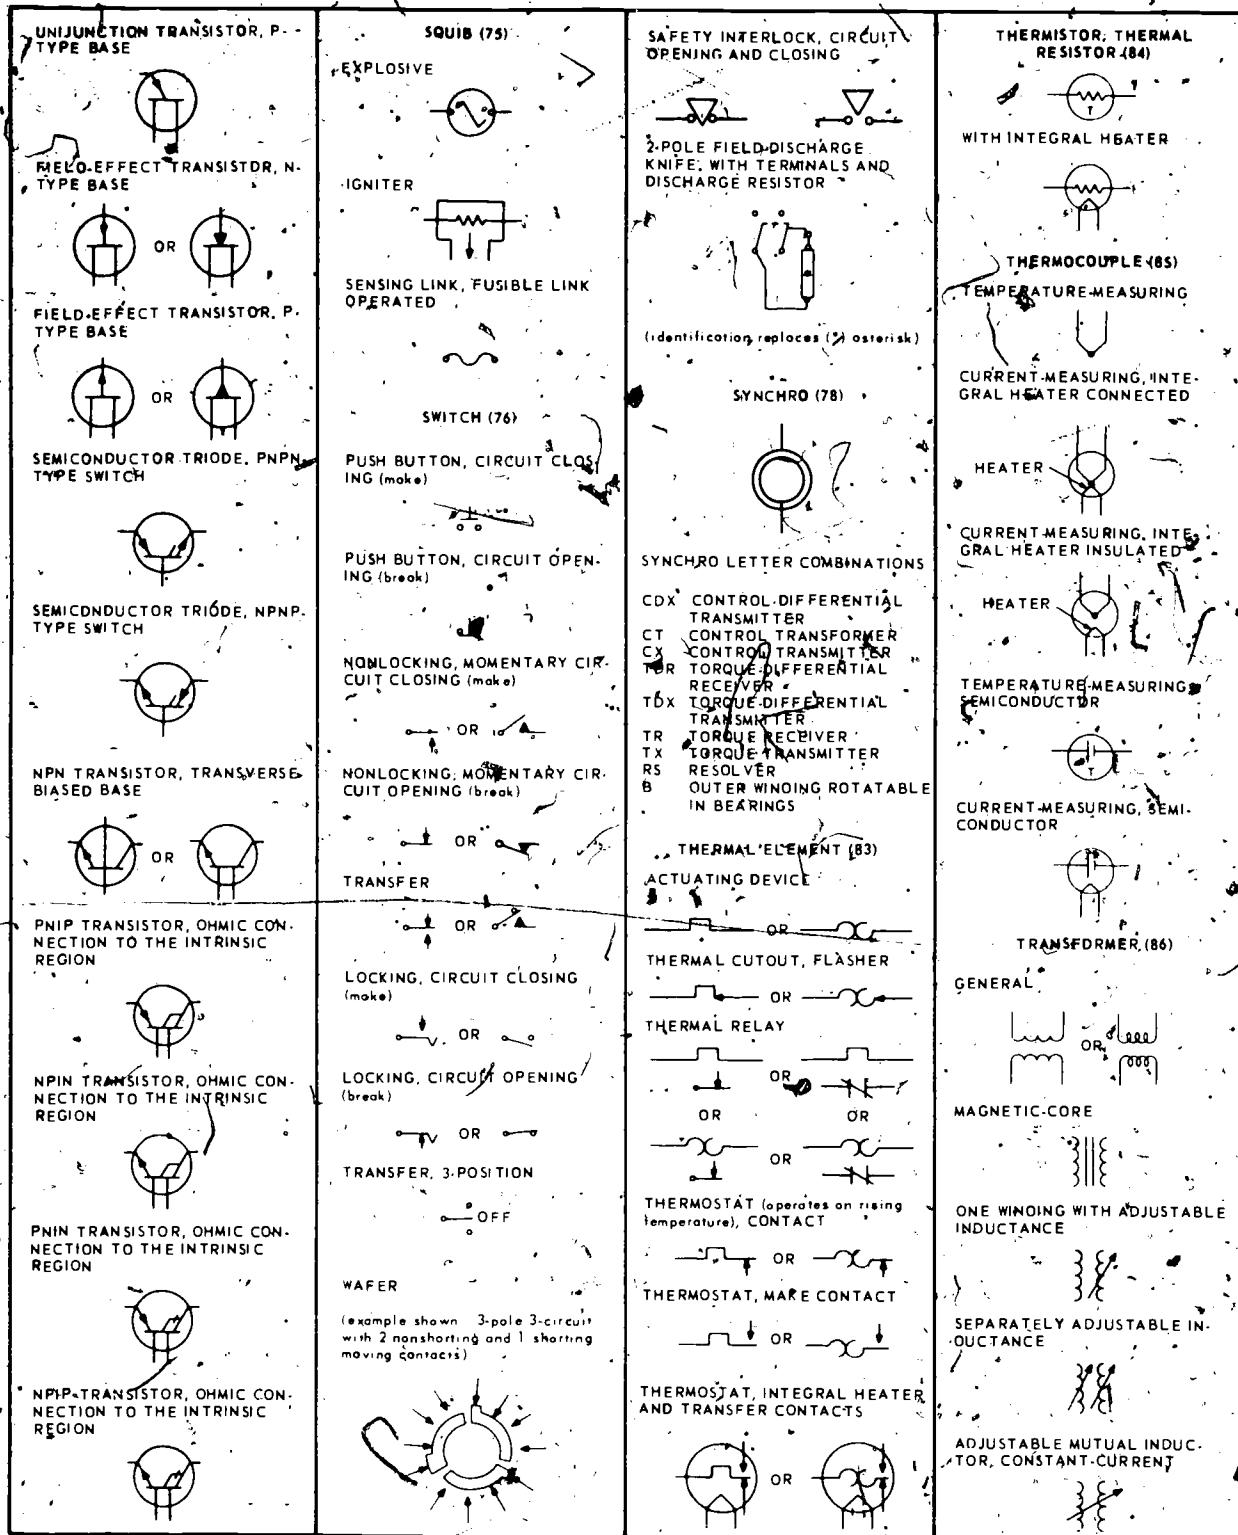 UNIJUNCTION TRANSISTOR, P-
TYPE BASE
FIELD-EFFECT TRANSISTOR, N-
TYPE BASE
OR
FIELD-EFFECT TRANSISTOR, P-
TYPE BASE
OR
SEMICONDUCTOR TRIODE, PNPN-
TYPE SWITCH
SEMICONDUCTOR TRIODE, NPNP-
TYPE SWITCH
NPN TRANSISTOR, TRANSVERSE-
BIASED BASE
OR
PNIP TRANSISTOR, OHMIC CON-
NECTION TO THE INTRINSIC
REGION
NPIN TRANSISTOR, OHMIC CON-
NECTION TO THE INTRINSIC
REGION
PNIN TRANSISTOR, OHMIC CON-
NECTION TO THE INTRINSIC
REGION
NPIP TRANSISTOR, OHMIC CON-
NECTION TO THE INTRINSIC
REGION
SQUIB (75)
EXPLOSIVE
IGNITER
SENSING LINK, FUSIBLE LINK
OPERATED
SWITCH (76)
PUSH BUTTON, CIRCUIT CLOS-
ING (make)
PUSH BUTTON, CIRCUIT OPEN-
ING (break)
NONLOCKING, MOMENTARY CIR-
CUIT CLOSING (make)
OR
NONLOCKING, MOMENTARY CIR-
CUIT OPENING (break)
OR
TRANSFER
OR
LOCKING, CIRCUIT CLOSING
(make)
OR
LOCKING, CIRCUIT OPENING
(break)
OR
TRANSFER, 3-POSITION
OFF
WAFER
(example shown 3-pole 3-circuit
with 2 nonshorting and 1 shorting
moving contacts)
SAFETY INTERLOCK, CIRCUIT
OPENING AND CLOSING
2-POLE FIELD-DISCHARGE
KNIFE, WITH TERMINALS AND
DISCHARGE RESISTOR
(identification replaces (*) asterisk)
SYNCHRO (78)
SYNCHRO LETTER COMBINATIONS
CDX CONTROL-DIFFERENTIAL
TRANSMITTER
CT CONTROL TRANSFORMER
CX CONTROL TRANSMITTER
TDR TORQUE-DIFFERENTIAL
RECEIVER
TDX TORQUE-DIFFERENTIAL
TRANSMITTER
TR TORQUE RECEIVER
TX TORQUE TRANSMITTER
RS RESOLVER
B OUTER WINDING ROTATABLE
IN BEARINGS
THERMAL ELEMENT (83)
ACTUATING DEVICE
OR
THERMAL CUTOUT, FLASHER
OR
THERMAL RELAY
OR
OR OR
OR
THERMOSTAT (operates on rising
temperature), CONTACT
OR
THERMOSTAT, MAKE CONTACT
OR
THERMOSTAT, INTEGRAL HEATER
AND TRANSFER CONTACTS
OR
THERMISTOR; THERMAL
RESISTOR (84)
T
WITH INTEGRAL HEATER
THERMOCOUPLE (85)
TEMPERATURE-MEASURING
CURRENT-MEASURING, INTE-
GRAL HEATER CONNECTED
HEATER
CURRENT-MEASURING, INTE-
GRAL HEATER INSULATED
HEATER
TEMPERATURE-MEASURING,
SEMICONDUCTOR
T
CURRENT-MEASURING, SEMI-
CONDUCTOR
TRANSFORMER (86)
GENERAL
OR
MAGNETIC-CORE
ONE WINDING WITH ADJUSTABLE
INDUCTANCE
SEPARATELY ADJUSTABLE IN-
DUCTANCE
ADJUSTABLE MUTUAL INDUC-
TOR, CONSTANT-CURRENT